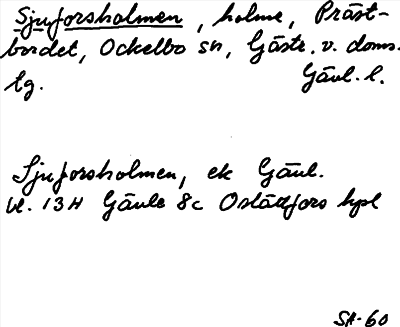 Sjuforsholmen, holme, Präst-
bordet, Ockelbo sn, Gästr. v. doms.
lg. Gävl. l.
Sjuforsholmen, ek Gävl.
bl. 13H Gävle 8c Oslättfors hpl
SH-60